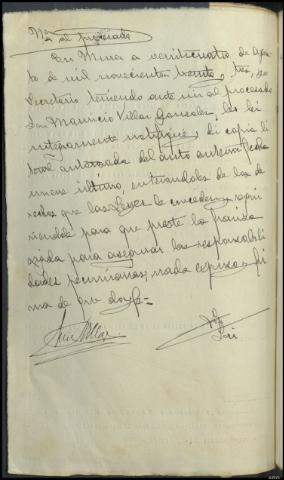 Non al procesado
En Mieres a veinticuatro de Agos
to de mil novecientos treinta y tres, yo
Secretario teniendo ante mi al procesado
Don Mauricio Villar Gonzalez, le lei
integramente notifiqué y di copia li
teral autorizada del auto anterior fecha
nueve último, enterandole de los de
rechos que las Leyes le conceden y requi
riendole para que preste la fianza
fijada para asegurar las responsabili
dades pecuniarias; nada expuso y fir
ma de que doy fe=
Villar